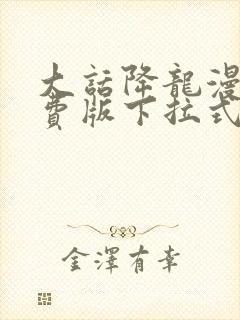 大話降龍漫
費版下拉式
金澤有幸